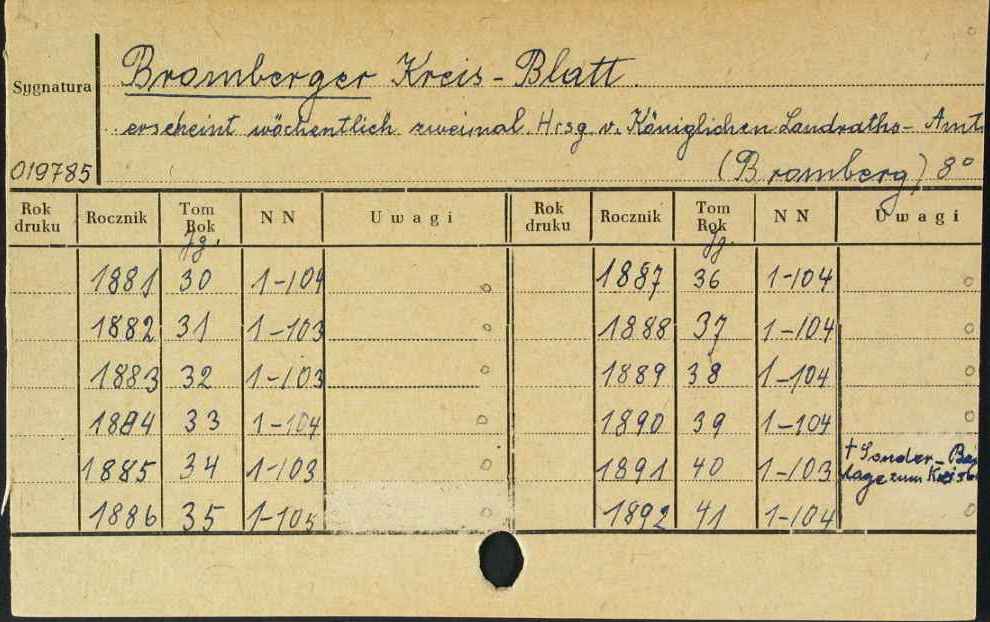 Bromberger Kreis-Blatt.
Sygnatura
erscheint wöchentlich zweimal. Hrsg. v. Königlichen Landraths-Amt
019785 (Bromberg) 8°
Rok druku Rocznik Tom Rok Jg. NN Uwagi Rok druku Rocznik Tom Rok Jg. NN Uwagi
1881 30 1-104 1887 36 1-104
1882 31 1-103 1888 37 1-104
1883 32 1-103 1889 38 1-104
1884 33 1-104 1890 39 1-104
1885 34 1-103 1891 40 1-103 + Sonder-Bei
lage zum
1886 35 1-105 1892 41 1-104